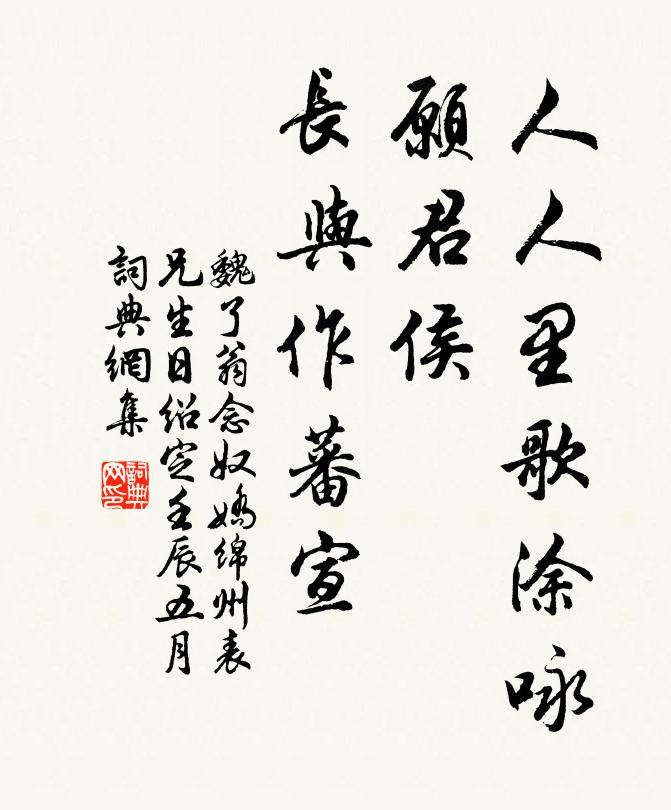 人人里歌涂咏
願君侯
長與作蕃宣
魏了翁念奴嬌綿州表
兄生日紹定壬辰五月
詞典網集
詞典网印